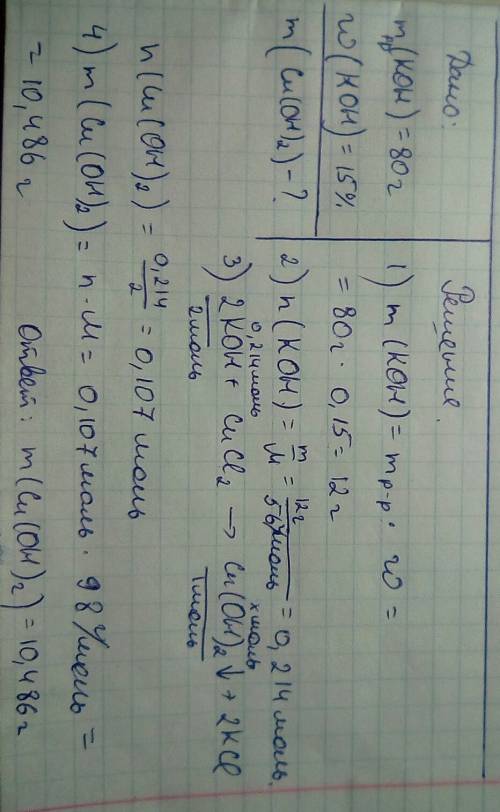 Дано:
mр-р(KOH) = 80г
w(KOH) = 15%
m(Cu(OH)₂) - ?
Решение.
1) m(KOH) = mр-р · w =
= 80г · 0,15 = 12г
2) n(KOH) = m/M = 12г/56г/моль = 0,214 моль.
0,214 моль x моль
3) 2KOH + CuCl₂ → Cu(OH)₂↓ + 2KCl
2 моль 1 моль
n(Cu(OH)₂) = 0,214/2 = 0,107 моль
4) m(Cu(OH)₂) = n · M = 0,107 моль · 98 г/моль =
= 10,486 г
Ответ: m(Cu(OH)₂) = 10,486 г